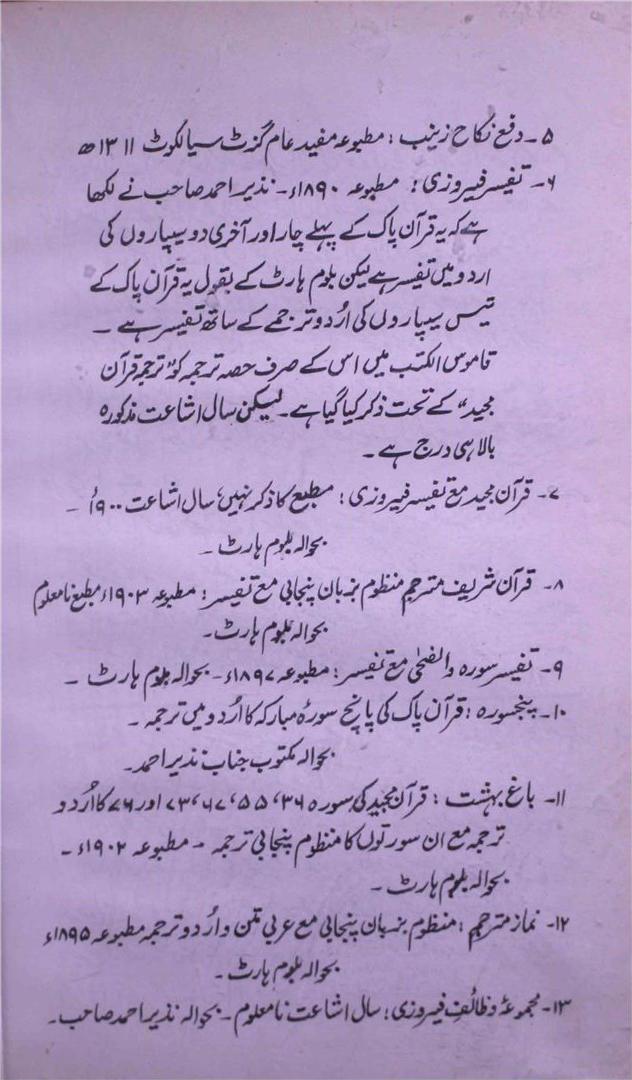 ۵۔ دفع نکاح زینب : مطبوعہ مفید عام گزٹ سیالکوٹ ۱۳۱۱ھ
۶۔ تفسیر فیروزی : مطبوعہ ۱۸۹۰ء۔ نذیر احمد صاحب نے لکھا
ہے کہ یہ قرآن پاک کے پہلے چار اور آخری دو سیپاروں کی
اردو میں تفسیر ہے لیکن بلوم ہارٹ کے بقول یہ قرآن پاک کے
تیس سیپاروں کی اُردو ترجمے کے ساتھ تفسیر ہے ۔
قاموس الکتب میں اس کے صرف حصہ ترجمہ کو ”ترجمہ قرآن
مجید“ کے تحت ذکر کیا گیا ہے۔ لیکن سال اشاعت مذکورہ
بالا ہی درج ہے ۔
۷۔ قرآن مجید مع تفسیر فیروزی : مطبع کا ذکر نہیں، سال اشاعت ۱۹۰۰ء ۔
بحوالہ بلوم ہارٹ ۔
۸۔ قرآن شریف مترجم منظوم بزبان پنجابی مع تفسیر : مطبوعہ ۱۹۰۳ء مطبع نامعلوم
بحوالہ بلوم ہارٹ۔
۹۔ تفسیر سورہ والضحیٰ مع تفسیر : مطبوعہ ۱۸۹۷ء۔ بحوالہ بلوم ہارٹ ۔
۱۰۔ پنجسورہ : قرآن پاک کی پانچ سورۂ مبارکہ کا اُردو میں ترجمہ ۔
بحوالہ مکتوب جناب نذیر احمد۔
۱۱۔ باغ بہشت : قرآن مجید کی سورہ ۳۶، ۵۵، ۶۷، ۷۳ اور ۷۶ کا اُردو
ترجمہ مع ان سورتوں کا منظوم پنجابی ترجمہ ۔ مطبوعہ ۱۹۰۲ء ۔
بحوالہ بلوم ہارٹ ۔
۱۲۔ نماز مترجم : منظوم بزبان پنجابی مع عربی متن و اُردو ترجمہ مطبوعہ ۱۸۹۵ء
بحوالہ بلوم ہارٹ ۔
۱۳۔ مجموعۂ وظائف فیروزی : سال اشاعت نامعلوم ۔ بحوالہ نذیر احمد صاحب ۔